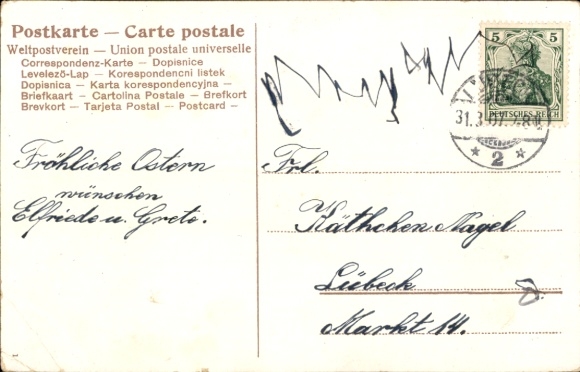 Postkarte — Carte postale
Weltpostverein — Union postale universelle
Correspondenz-Karte — Dopisnice
Levelező-Lap — Korespondencni listek
Dopisnica — Karta korespondencyjna —
Briefkaart — Cartolina Postale — Brefkort
Brevkort — Tarjeta Postal — Postcard —
Fröhliche Ostern
wünschen
Elfriede u. Grete.
5 5
DEUTSCHES REICH
31.3.07.
* 2 *
Frl.
Käthchen Nagel
Lübeck
Markt 14.